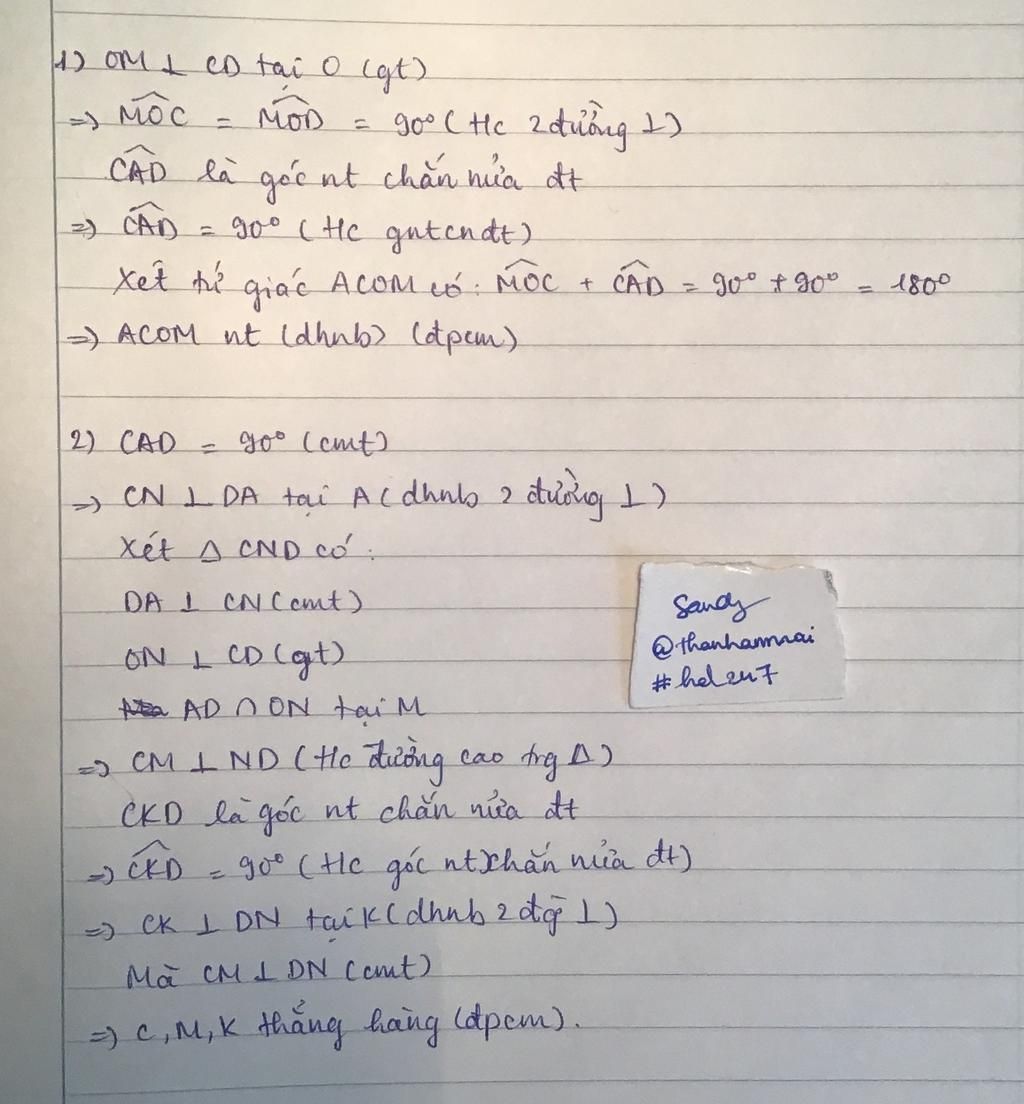 1) OM ⊥ CD tại O (gt)
=> M̂OC = M̂OD = 90° (tc 2 đường ⊥)
ĈAD là góc nt chắn nửa đt
=> ĈAD = 90° (tc gntcnđt)
Xét tứ giác ACOM có: M̂OC + ĈAD = 90° + 90° = 180°
=> ACOM nt (dhnb) (đpcm)
2) CAD = 90° (cmt)
=> CN ⊥ DA tại A (dhnb 2 đường ⊥)
Xét Δ CND có:
DA ⊥ CN (cmt)
ON ⊥ CD (gt)
AD ∩ ON tại M
=> CM ⊥ ND (tc đường cao trg Δ)
CKD là góc nt chắn nửa đt
=> ĈKD = 90° (tc góc nt chắn nửa đt)
=> CK ⊥ DN tại K (dhnb 2 đg ⊥)
Mà CM ⊥ DN (cmt)
=> C, M, K thẳng hàng (đpcm).
Sandy
@thanhanmai